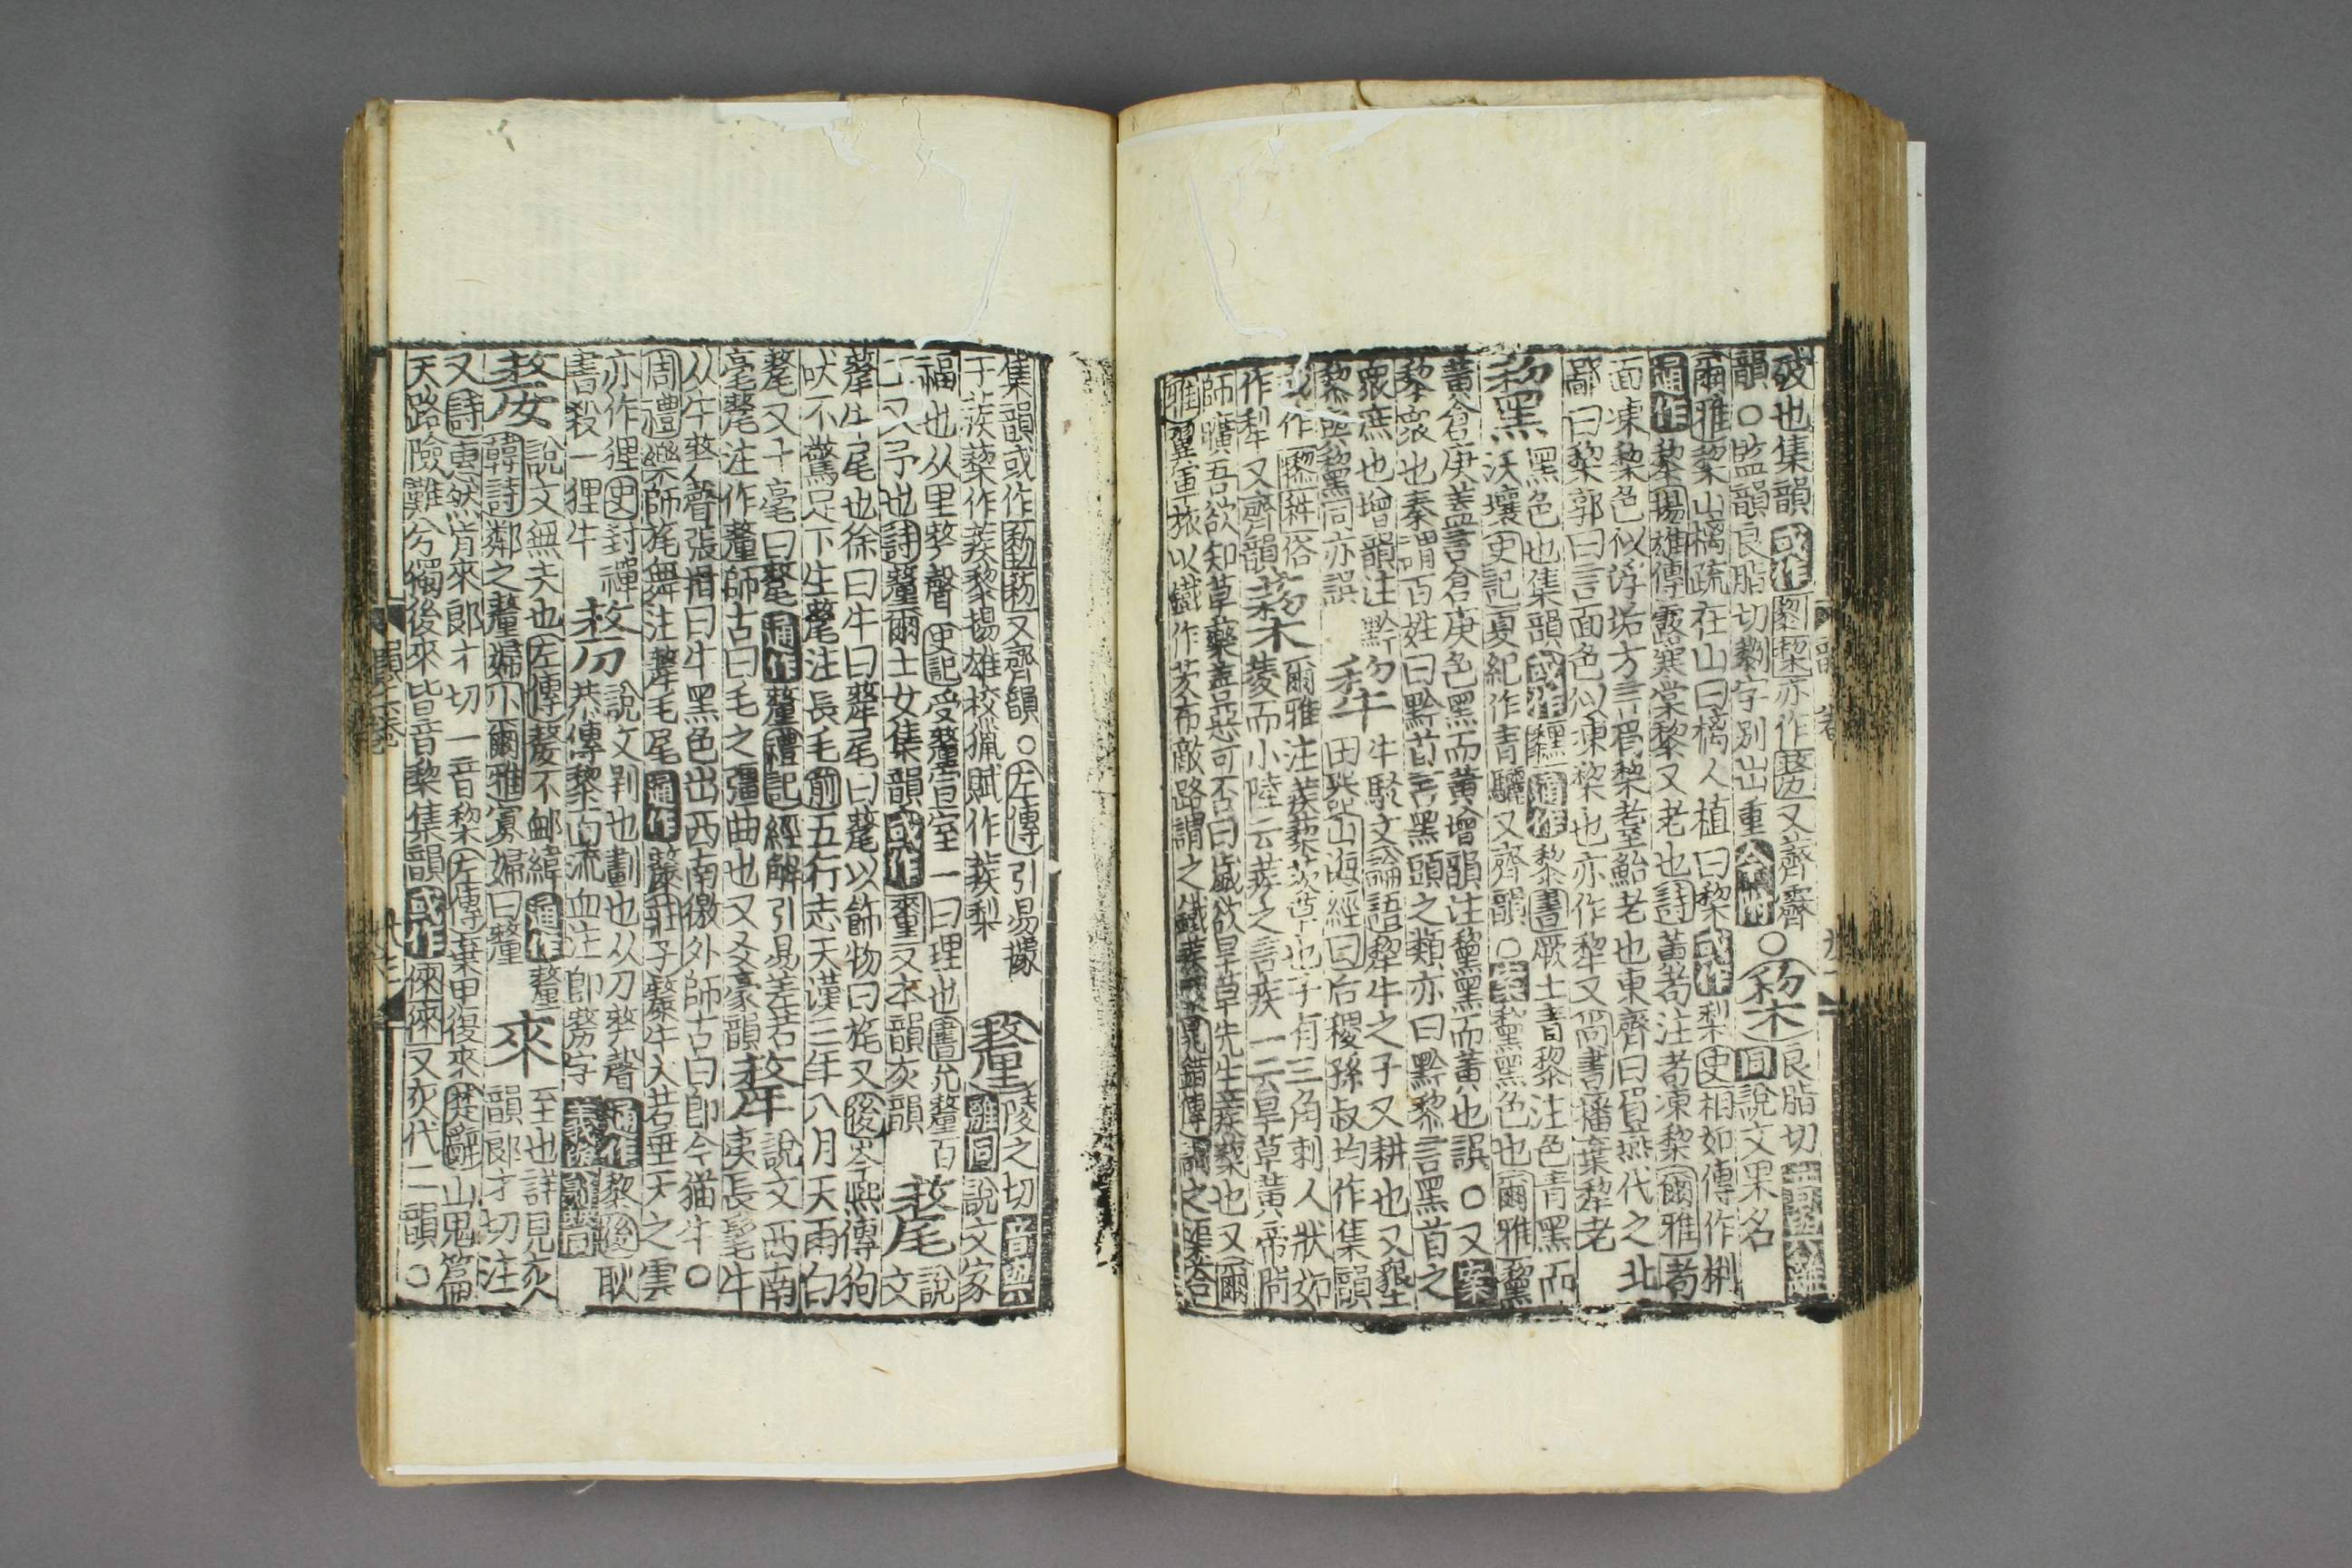 破也集韻或作劙㓯亦作剺又齊霽
韻○監韻良脂切剺字別出重 ○棃 良脂切
同說文果名
爾雅棃山樆疏在山曰樆人植曰棃或作梨史相如傳作樆
通作黎揚雄傳露寒棠黎又老也詩黃耇注耇凍黎爾雅耇
面凍棃色似浮垢方言眉棃耋鮐老也東齊曰眉燕代之北
鄙曰棃郭曰言面色似凍棃也亦作犂又尚書播棄犂老
黧 黑色也集韻或作 通作黎書厥土青黎注色青黑而
沃壤史記夏紀作青驪又齊韻○案黧黑色也爾雅黧
黃倉庚蓋言倉庚色黑而黃增韻注黧黑而黃也誤○又案
黎衆也秦謂百姓曰黔首言黑頭之類亦曰黔黎言黑首之
衆庶也增韻注黔 犂 牛駁文論語犂牛之子又耕也又墾
黎與黧同亦誤 田器山海經曰后稷孫叔均作集韻
或作 俗 蔾 爾雅注蒺蔾茨草也子有三角刺人狀如
作犁又齊韻 菱而小陸云蒺之言疾一云旱草黃帝問
師曠吾欲知草藥善惡可否曰歲欲旱旱草先生蒺蔾也又爾
雅翼軍旅以鐵作茨布敵路謂之鐵蒺蔾鼂錯傳謂之渠荅
集韻或作 又齊韻○左傳引易據
于蒺蔾作蒺黎揚雄校獵賦作蒺梨 釐 陵之切
說文家
福也从里𠩺聲史記受釐宣室一曰理也書允釐百
工又予也詩釐爾士女集韻或作 又本韻灰韻 氂 說文
犛牛尾也徐曰牛曰犛尾曰氂以飾物曰旄又後岑熙傳狗
吠不驚足下生氂注長毛前五行志天漢三年八月天雨白
氂又十毫曰氂通作釐禮記經解引易差若
毫氂注作釐師古曰毛之彊曲也又豪韻 犛 說文西南
夷長髦牛
从牛𠩺聲張揖曰牛黑色出西南徼外師古曰即今猫牛○
周禮樂師旄舞注犛毛尾通作 莊子斄牛大若垂天之雲
亦作狸史封禪
書殺一狸牛 剺 說文剝也劃也从刀𠩺聲通作黎後耿
恭傳黎面流血注即剺字
嫠 說文無夫也左傳嫠不恤緯通作釐
韓詩鄰之釐婦小爾雅寡婦曰釐 來 至也詳見灰
韻郎才切注
又詩惠然肯來郎才切一音棃左傳棄甲復來楚辭山鬼篇
天路險難兮獨後來皆音黎集韻或作徠倈又灰代二韻○